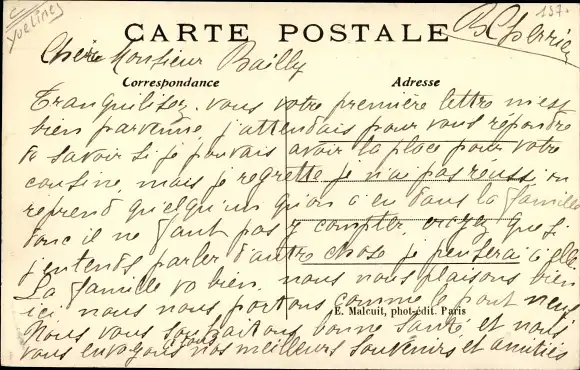 Yvelines
137.
CARTE POSTALE
B. Cherrier
Chère Monsieur Bailly
Correspondance
Adresse
Tranquilisez-vous votre première lettre m'est
bien parvenue, j'attendais pour vous répondre
de savoir si je pouvais avoir la place pour votre
cousine, mais je regrette je n'ai pas réussi on
reprend quelqu'un qu'on a eu dans la famille
donc il ne faut pas y compter, croyez que si
j'entends parler d'autre chose je penserai à elle
La famille va bien. nous nous plaisons bien
ici nous nous portons comme le pont neuf
E. Malcuit, phot-édit. Paris
Nous vous souhaitons bonne santé et nous
vous envoyons tous nos meilleurs souvenirs et amitiés